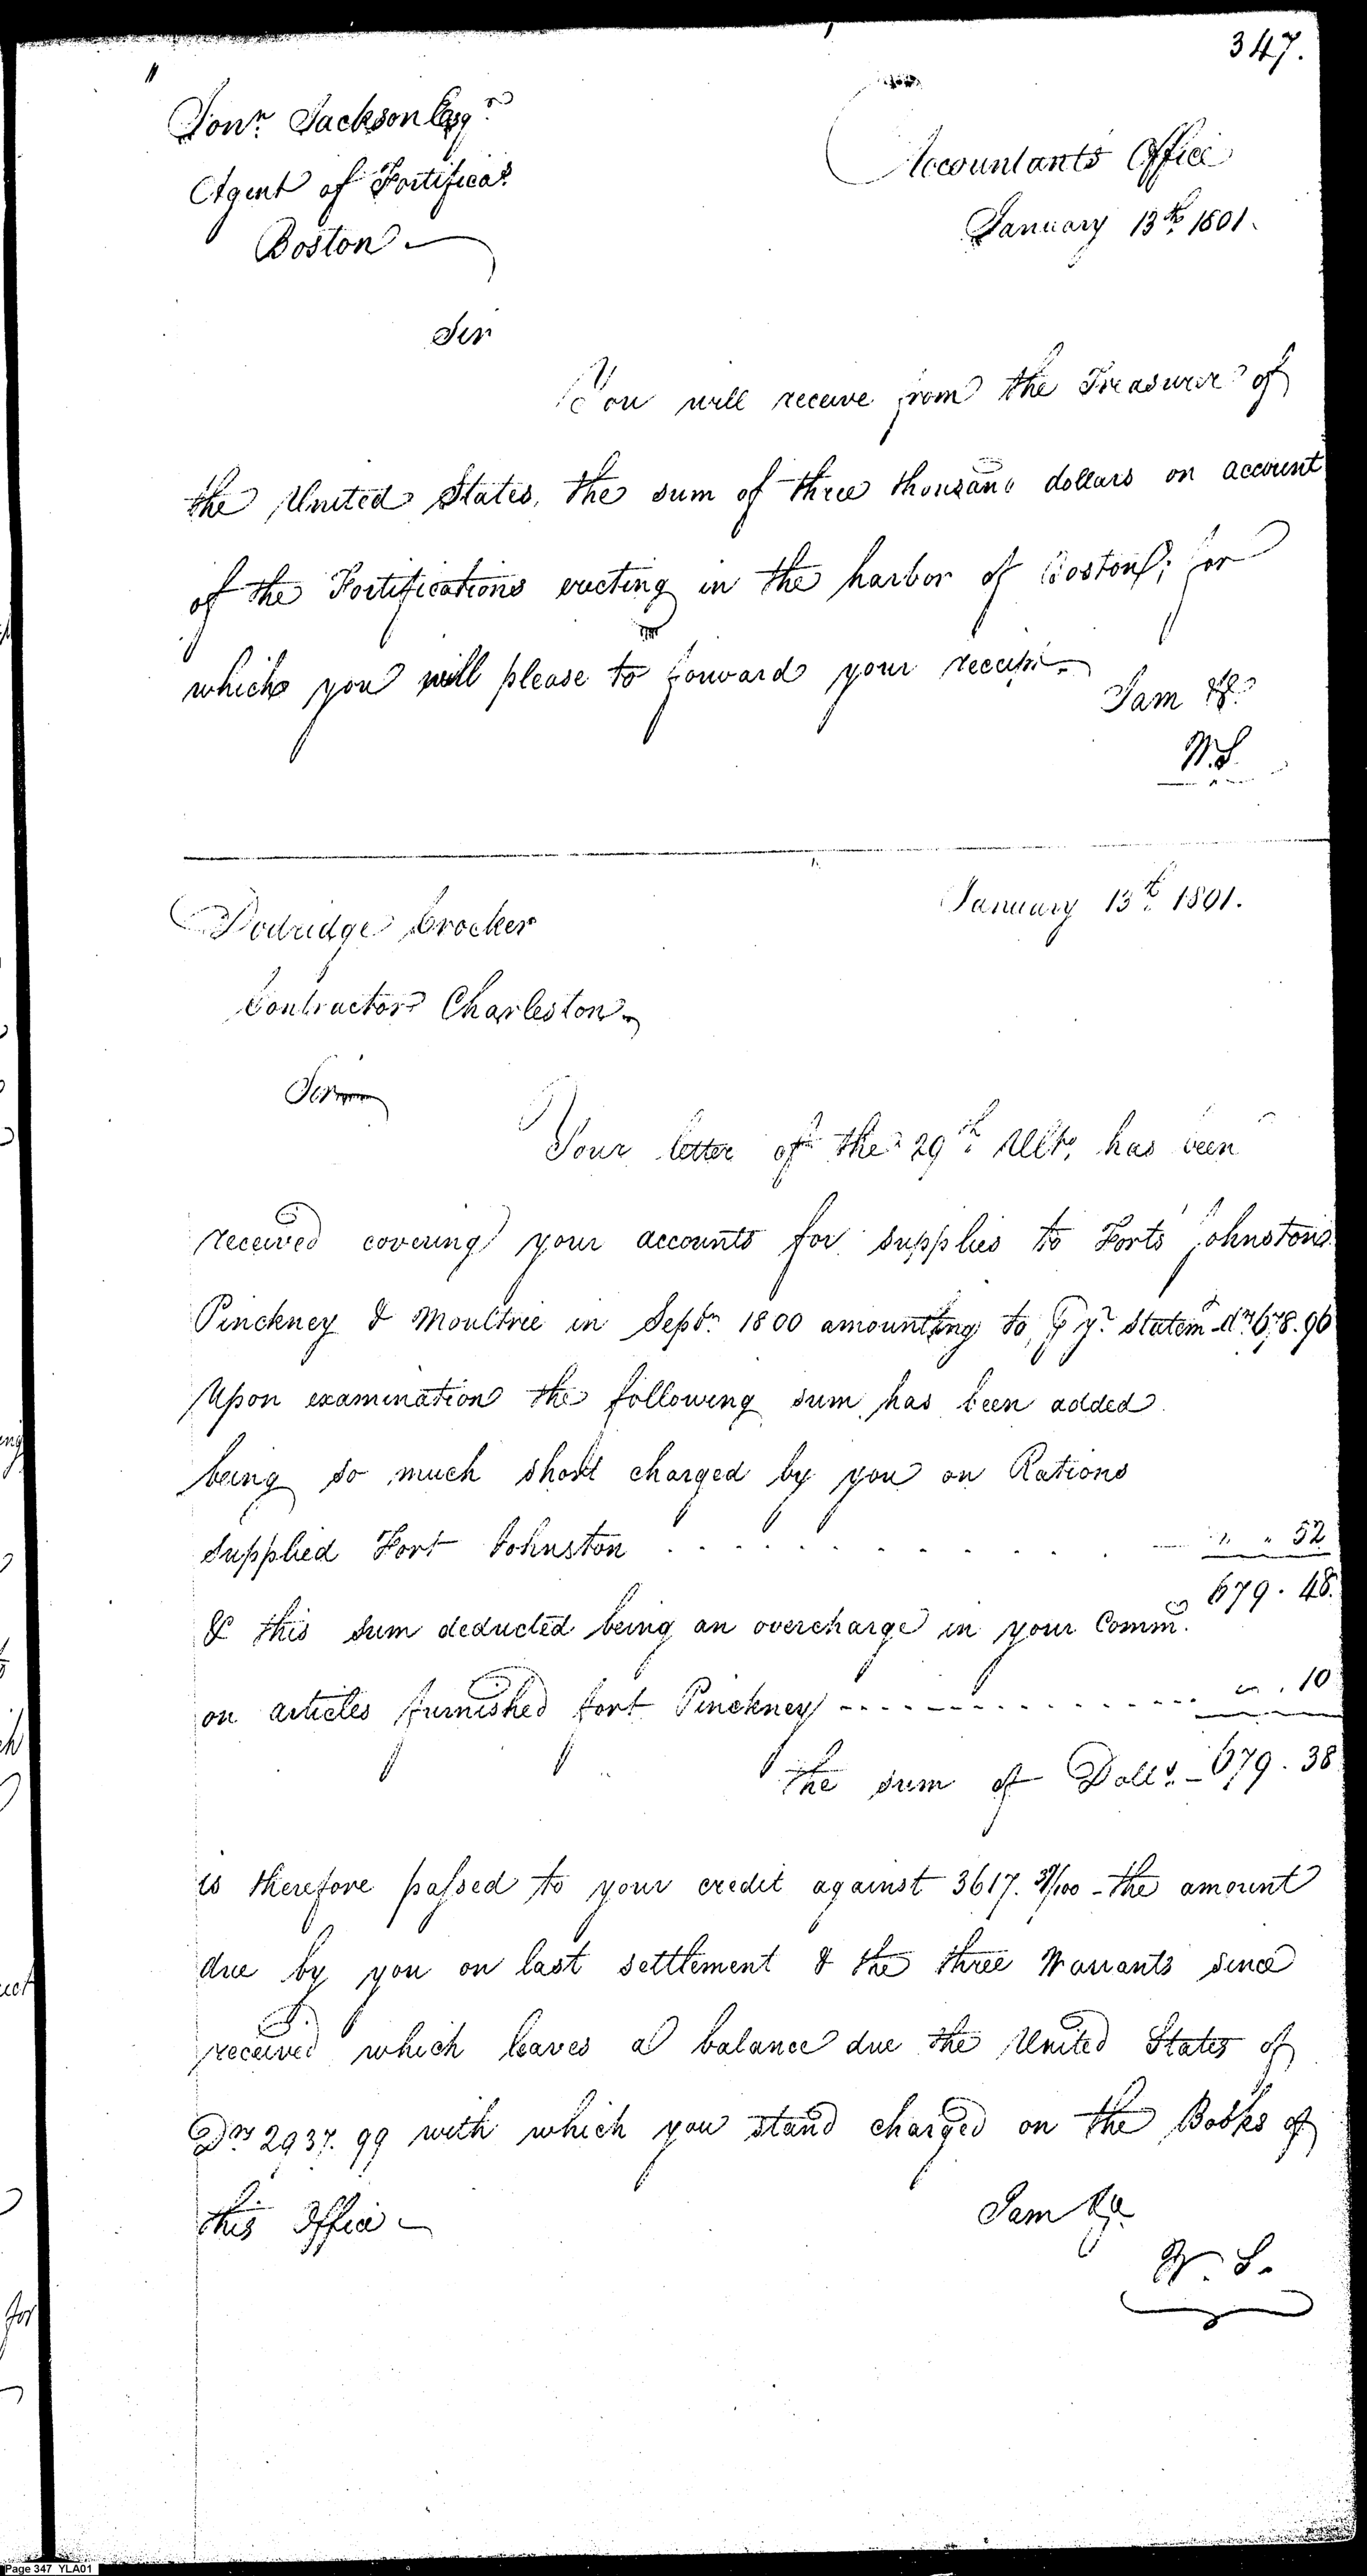 347.
Jonn. Jackson Esqr.
Agent of Fortificas.
Boston
Accountants Office
January 13th 1801.
Sir
You will receive from the Treasurer of
the United States, the sum of three thousand dollars on account
of the Fortifications erecting in the harbor of Boston; for
which you will please to forward your receipt.
I am &c.
W.S.
January 13th. 1801.
Dodridge Crocker
Contractor Charleston
Sir
Your letter of the 29th. Ulto. has been
received covering your accounts for supplies to Forts Johnston
Pinckney & Moultrie in Septr. 1800 amounting to yr. Statemt Drs 678.96
Upon examination the following sum has been added
being so much short charged by you on Rations
supplied Fort Johnston . . . . . . . . . . . . " " 52
679. 48.
& this sum deducted being an overcharge in your Commn.
on articles furnished fort Pinckney - - - - - - - - - - - - - - - " . 10
the sum of Dolls. - 679. 38
is therefore passed to your credit against 3617. 37/100 - the amount
due by you on last settlement & the three Warrants since
received which leaves a balance due the United States of
Drs 2937. 99 with which you stand charged on the Books of
this Office
I am &c
W. S.
Page 347 YLA01